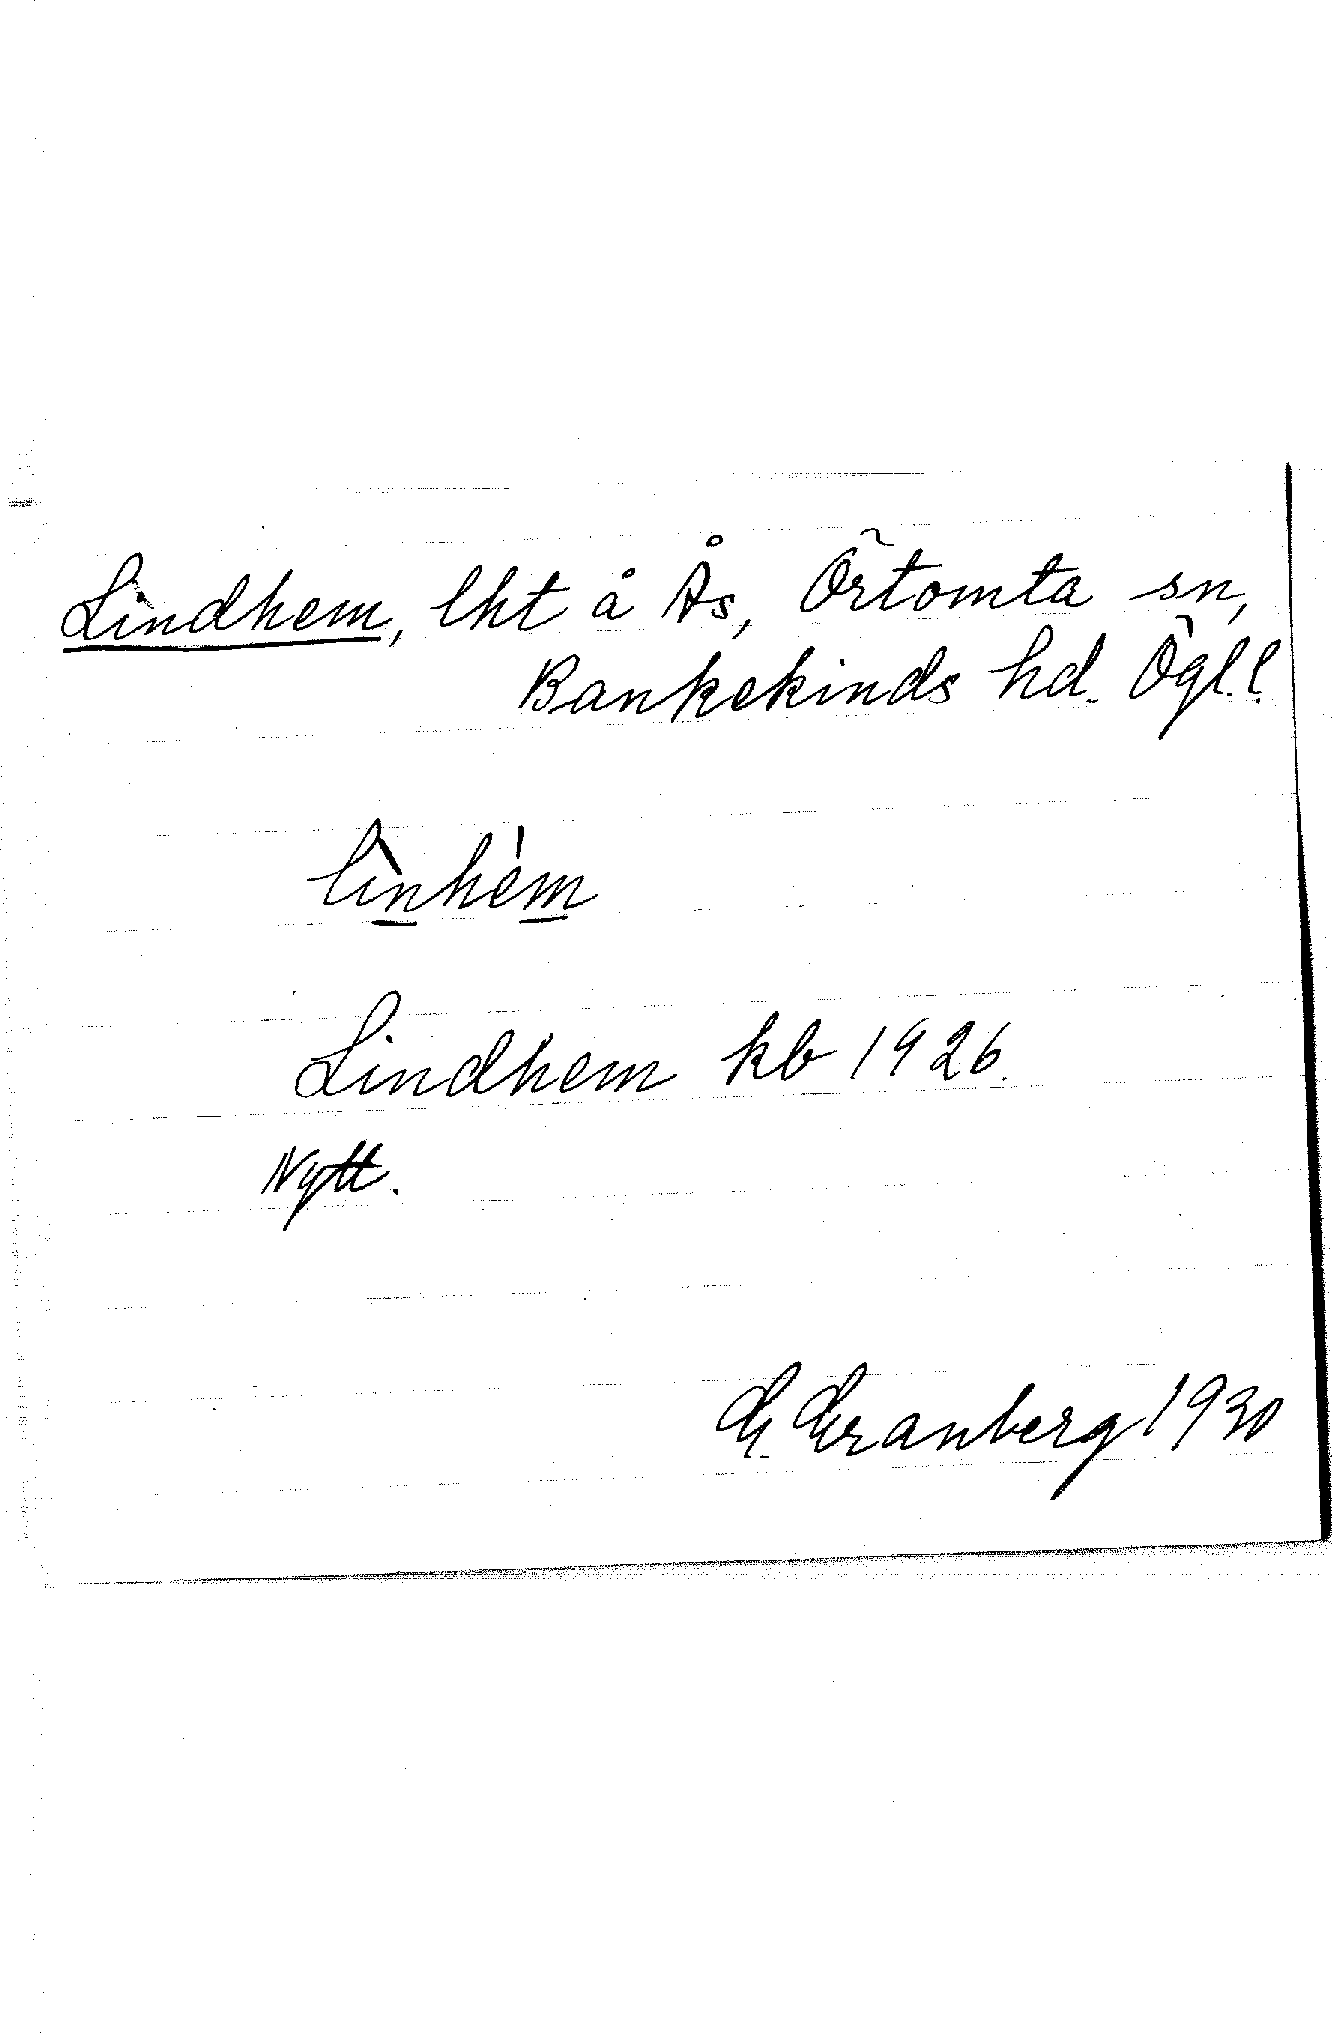 Lindhem, lht å Ås, Örtomta sn,
Bankekinds hd. Ögl.l.
lìnhèm
Lindhem kb 1926.
Nytt.
G. Granberg 1930